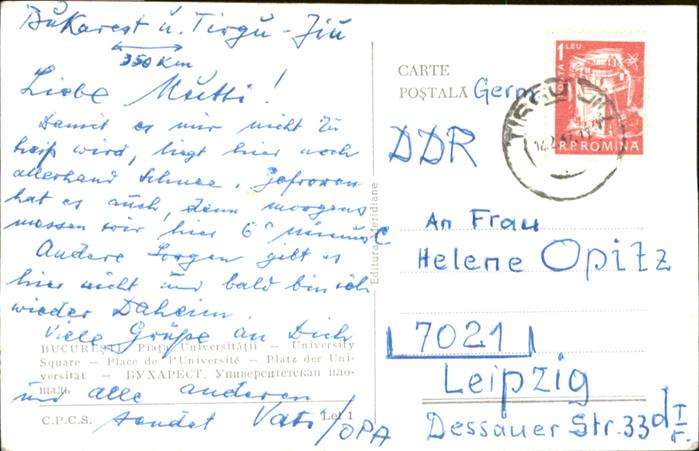 Bukarest u. Tirgu-Jiu
350 Km
Liebe Mutti!
Damit es mir nicht zu
heiß wird, liegt hier noch
allerhand Schnee. Gefroren
hat es auch, denn morgens
messen wir hier 6° minus C
Andere Sorgen gibt es
hier nicht und bald bin ich
wieder Daheim.
Viele Grüße an Dich
BUCUREŞTI Piaţa Universităţii — University
Square — Place de l'Université — Platz der Uni-
versität — БУХАРЕСТ. Университетская пло-
щадь.
und alle anderen
C.P.C.S. Lei 1
sendet Vati/OPA
Editura Meridiane
CARTE
POŞTALĂ
Germ
DDR
1 LEU
R.P.ROMINA
An Frau
Helene Opitz
7021
Leipzig
Dessauer Str. 33d I
r.